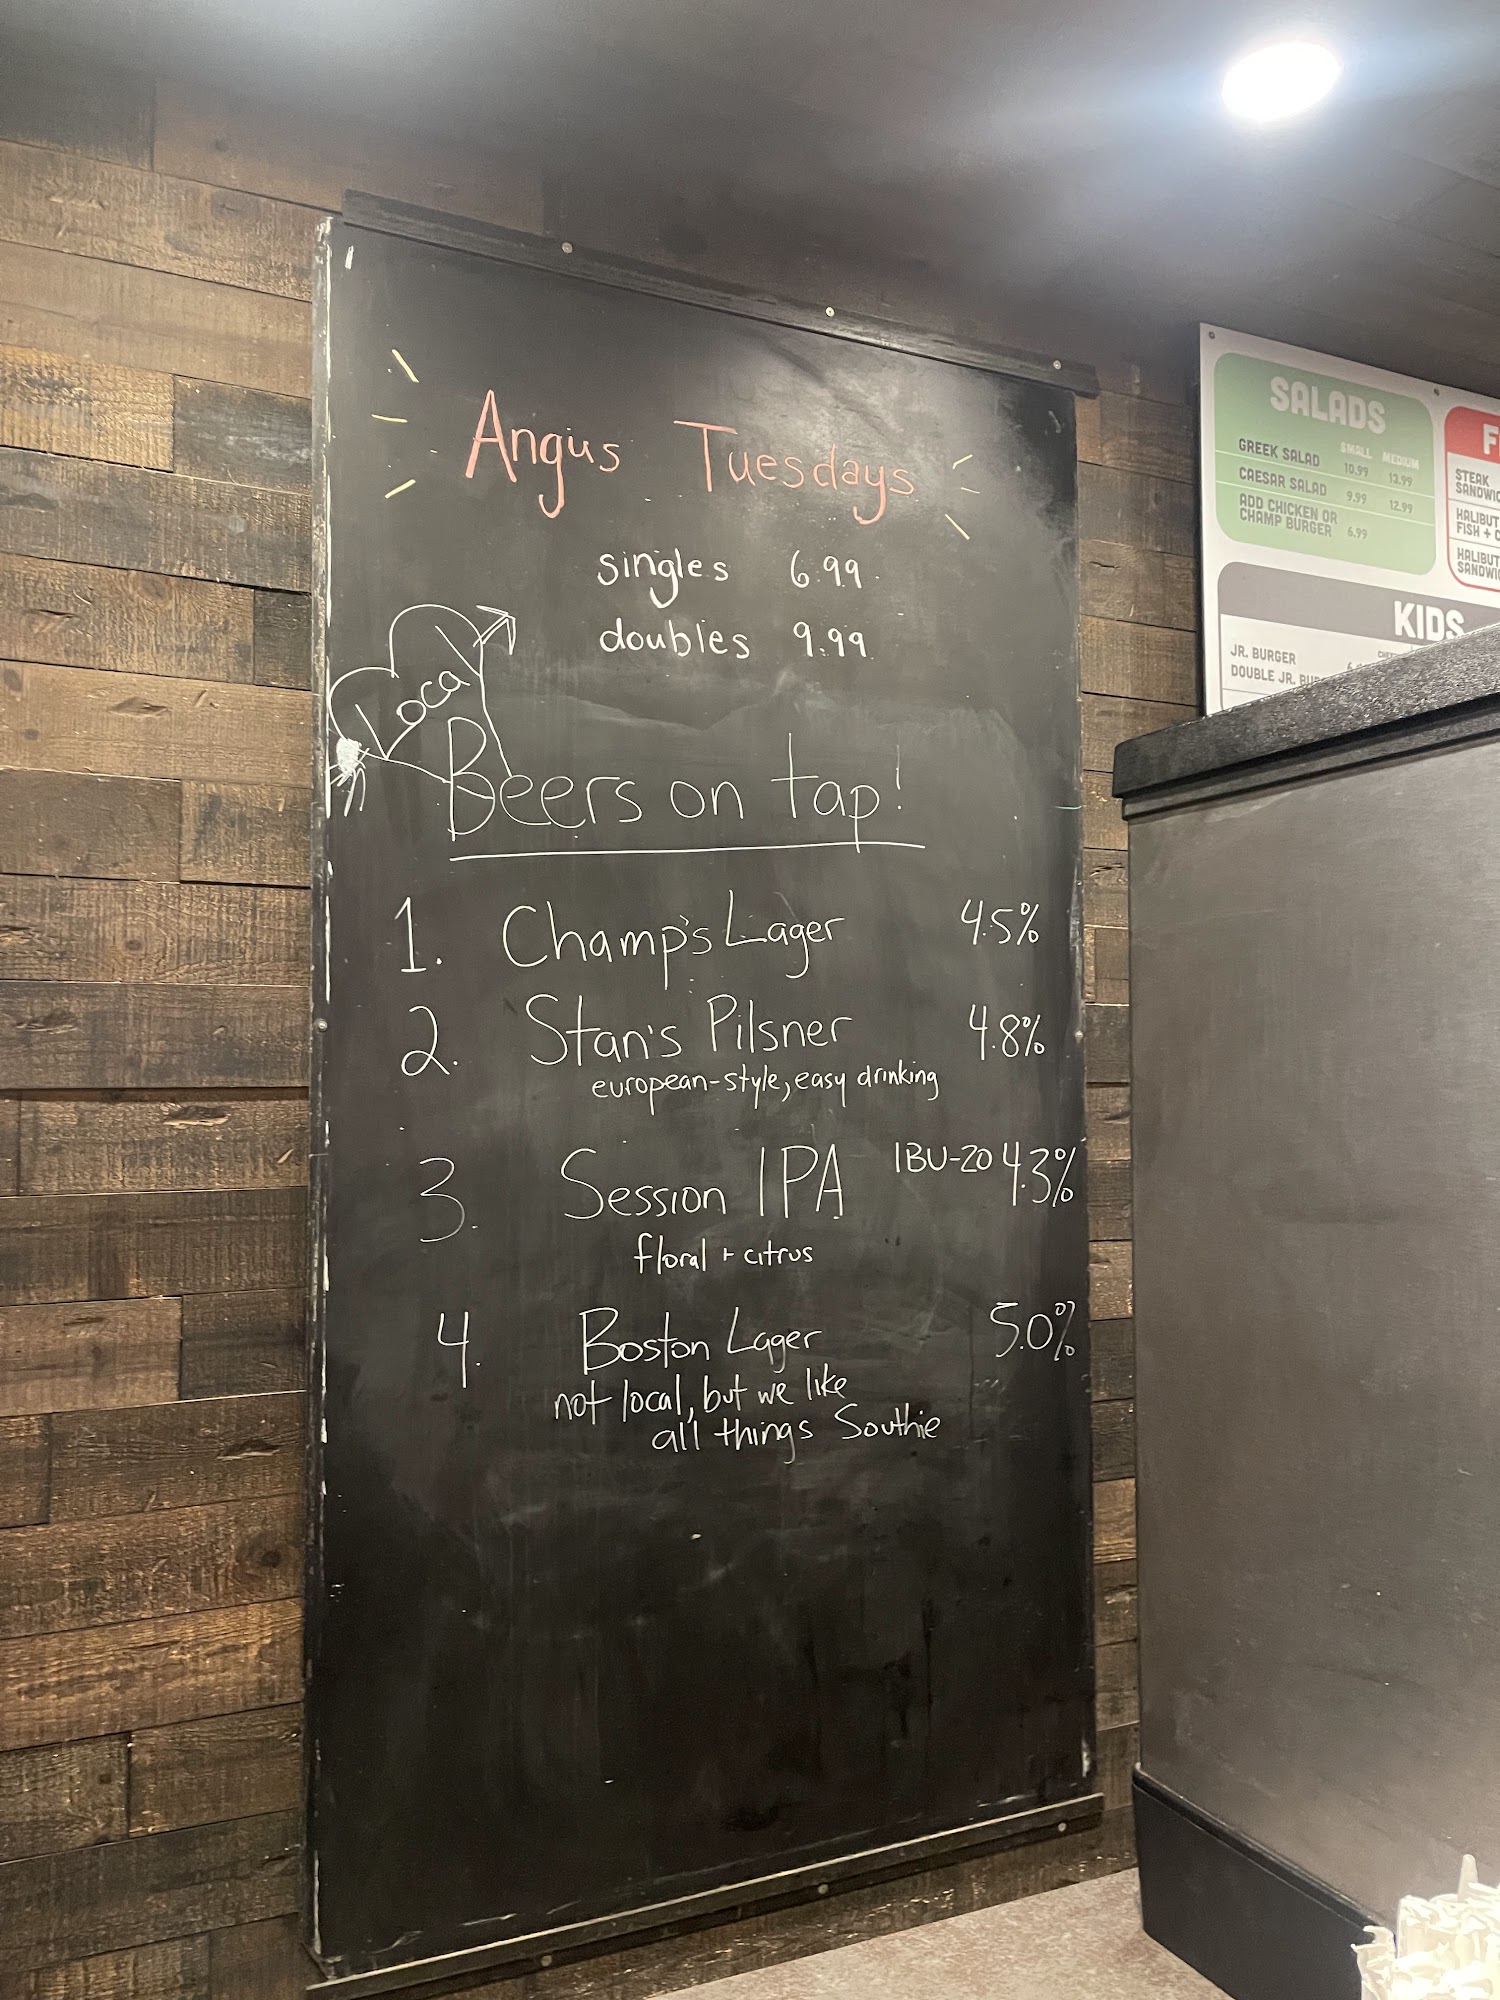 Angus Tuesdays
singles 6.99
doubles 9.99
Local
Beers on tap!
1. Champ's Lager 4.5%
2. Stan's Pilsner 4.8%
european-style, easy drinking
3. Session IPA IBU-20 4.3%
floral + citrus
4. Boston Lager 5.0%
not local, but we like
all things Southie
SALADS
SMALL MEDIUM
GREEK SALAD 10.99 13.99
CAESAR SALAD 9.99 12.99
ADD CHICKEN OR
CHAMP BURGER 6.99
STEAK
HALIBUT
FISH +
HALIBUT
KIDS
JR. BURGER
DOUBLE JR.